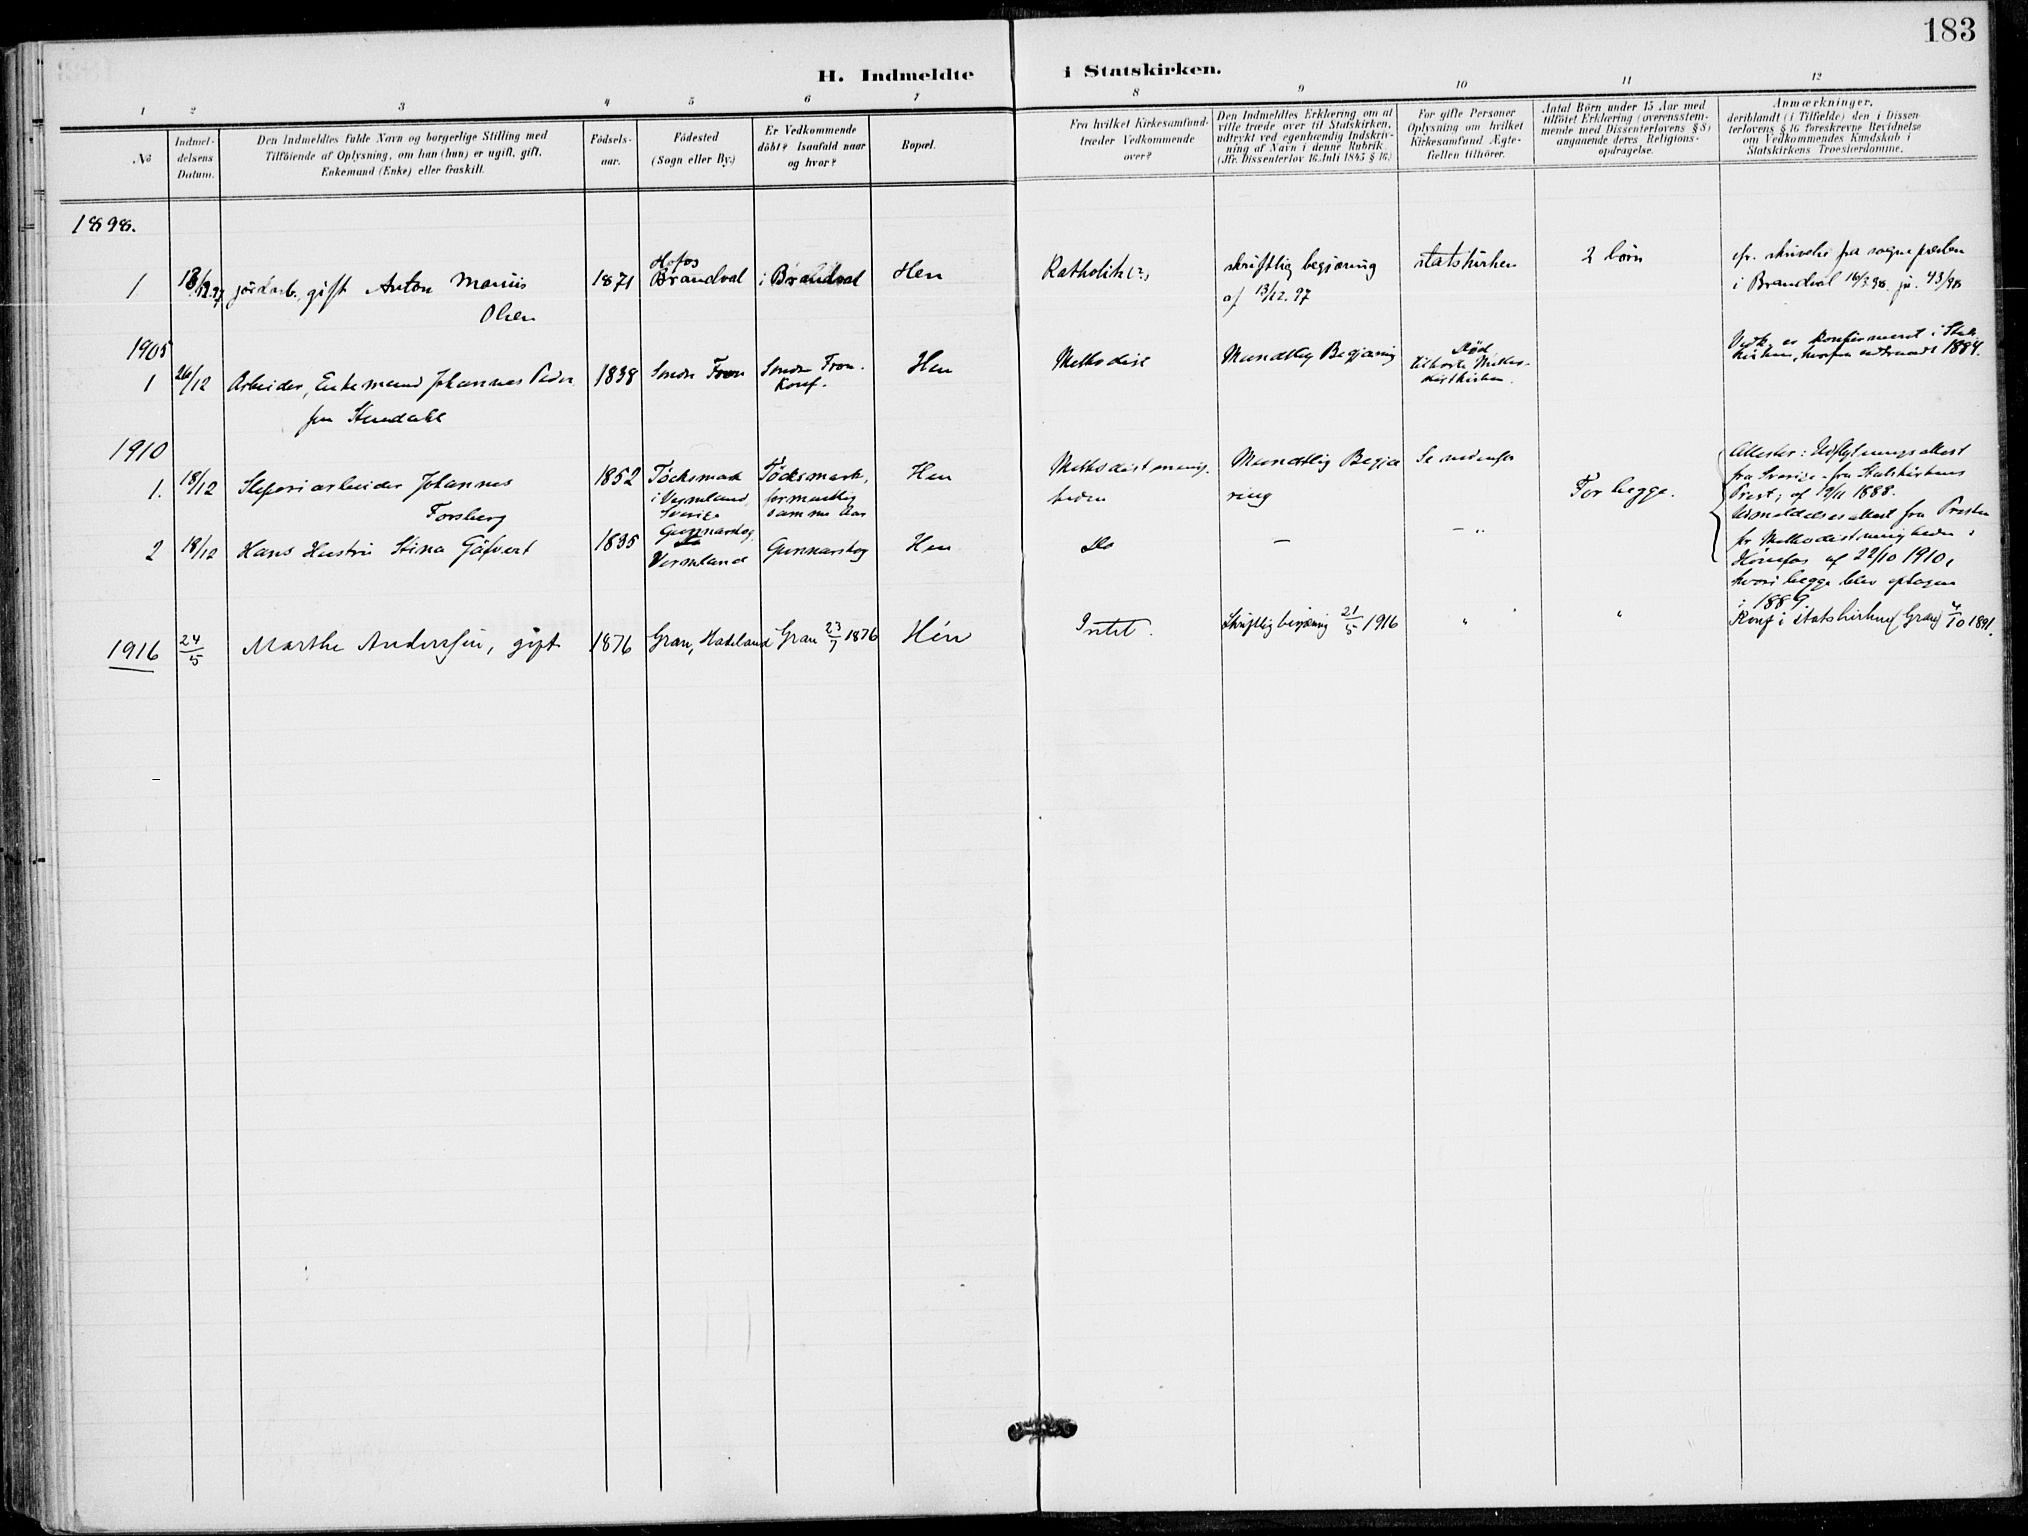 183
H. Indmeldte i Statskirken.
1 2 3 4 5 6 7 8 9 10 11 12
No
Indmel-
delsens
Datum.
Den Indmeldtes fulde Navn og borgerlige Stilling med
Tilföiende af Oplysning, om han (hun) er ugift, gift,
Enkemand (Enke) eller fraskilt.
Födsels-
aar.
Födested
(Sogn eller By.)
Er Vedkommende
döbt? Isaafald naar
og hvor?
Bopæl.
Fra hvilket Kirkesamfund
træder Vedkommende
over?
Den Indmeldtes Erklæring om at
ville træde over til Statskirken,
udtrykt ved egenhændig Indskriv-
ning af Navn i denne Rubrik.
(Jfr. Dissenterlov 16 Juli 1845 § 16.)
For gifte Personer
Oplysning om hvilket
Kirkesamfund Ægte-
fællen tilhörer.
Antal Börn under 15 Aar med
tilföiet Erklæring (overensstem-
mende med Dissenterlovens § 8)
angaaende deres Religions-
opdragelse.
Anmærkninger,
deriblandt (i Tilfælde) den i Dissen-
terlovens § 16 foreskrevne Bevidnelse
om Vedkommendes Kundskab i
Statskirkens Troeslærdomme.
1898.
1 13/12.97 jordarb., gift Anton Marius
Olsen
1871
Hofos
Brandval
i Brandval
Hen
Katholik (?)
skriftlig begjæring
af 13/12.97
statskirken
2 börn
cfr. skrivelse fra sognepresten
i Brandval 16/3.98. jn. 43/98
1905
1 26/12 Arbeider, Enkemand Johannes Peder
sen Stendahl
1838
Søndre Fron
Søndre Fron.
Konf.
Hen
Methodist
Mundtlig Begjæring
Död
tilhørte Metho-
distkirken.
Vedk. er konfirmeret i Stats
kirken, hvorfra udtraadt 1884.
1910
1. 18/12 Sliperiarbeider Johannes
Forsberg
1852
Töcksmark
i Vermland,
Sverige
Töcksmark,
formentlig
samme Aar
Hen
Methodistmenig-
heden
Mundtlig Begjæ
ring
Se nedenfor
For begge.
Attester: Udflytningsattest
fra Sverige fra Statskirkens
Prest, af 19/11 1888.
Udmeldelsesattest fra Presten
for Methodistmenigheden i
Hönefos af 22/10 1910,
hvori begge blev optagen
i 1889.
2 18/12 Hans Hustru Stina Gäfvert
1835
Gunnarskog,
Vermland
Gunnarskog
Hen
Do
—
— "
1916 24/5 Marthe Anderssen, gift
1876
Gran, Hadeland
Gran 23/7 1876
Hén
Intet.
Skriftlig begjæring 21/5 1916
"
"
Konf i statskirken (Gran) 4/10 1891.